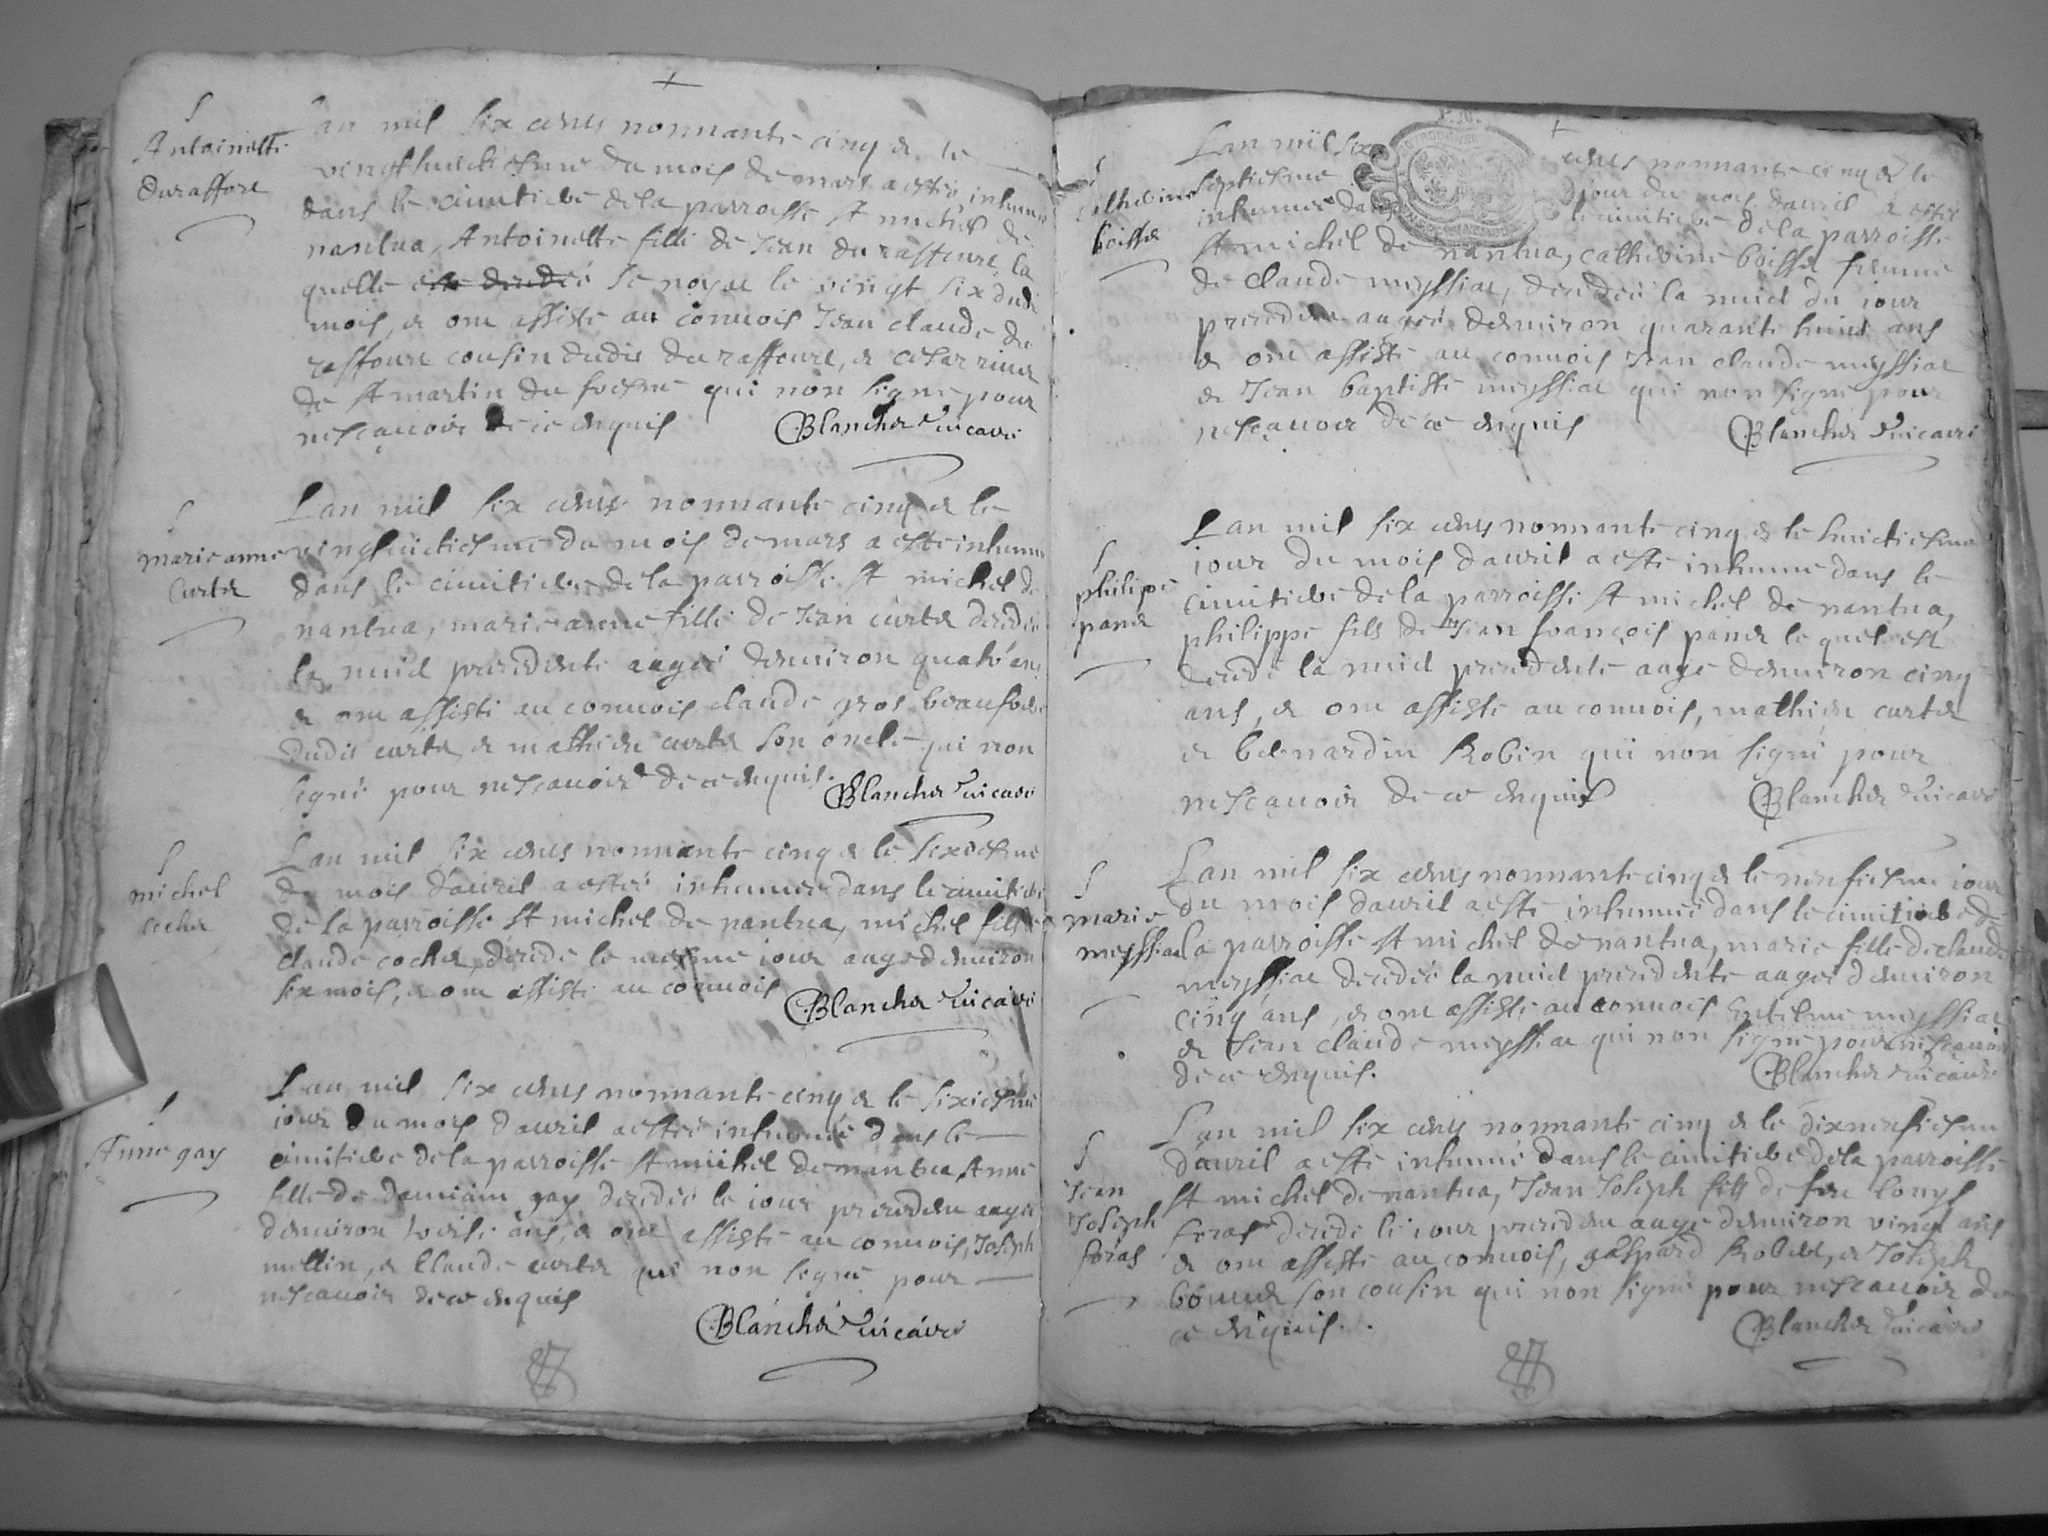 S
Antoinette
duraffore
Lan mil six cents nonnante cinq & le
vingt huictiesme du mois de mars a esteé inhumé
dans le cimitiere de la parroisse st michel de
nantua, Antoinette fille de Jean du raffoure la
quelle se noyae le vingt six dudi
mois, & ont assisté au conuois Jean claude du
raffoure cousin dudit du raffoure, &
de st martin du fresne qui non signe pour
nescauoir de ce enquis Blanchet vicaire
S
marie anne
Curtet
Lan mil six cents nonnante cinq & le
vingt huictiesme du mois de mars a este inhumé
dans le cimitiere de la parroisse st michel de
nantua, marie anne fille de Jean curtet decedeé
la nuid precedente aageé denuiron quatr'ans
& ont assisté au conuois claude gros beaufrere
dudit curtet & mathieu curtet son oncle qui non
signé pour nescauoir de ce enquis. Blanchet vicaire
S
michel
cochet
Lan mil six cents nonnante cinq & le sixiesme
du mois d'auril a esteé inhumee dans le cimitiere
de la parroisse st michel de nantua, michel fils de
claude cochet, decede le mesme iour aage denuiron
six mois, & ont assisté au conuois
Blanchet vicaire
S
Anne gay
Lan mil six cents nonnante cinq & le sixiesme
iour du mois d'auril a esteé inhumeé dans le
cimitiere de la parroisse st michel de nantua Anne
fille de damiain gay decedeé le iour precedent aageé
denuiron treise ans, & ont assisté au conuois, Joseph
mettin, & Claude curtet qui non signé pour
nescauoir de ce enquis
Blanchet vicaire
S
Catherine
boisset
Lan mil six cents nonnante cinq & le
septiesme jour du mois dauril a esteé
inhumeé dans le cimitiere de la parroisse
st michel de nantua, catherine boisset femme
de claude meyssiat, decedeé la nuid du iour
precedent aageé denuiron quarante huict ans
& ont assisté au conuois Jean claude meyssiat
& Jean baptiste meyssiat qui non signé pour
nescauoir de ce enquis Blanchet vicaire
S
philippe
panet
Lan mil six cents nonnante cinq & le huictiesme
iour du mois dauril a esté inhumé dans le
cimitiere de la parroisse st michel de nantua,
philippe fils de Jean françois panet le quel est
decedé la nuid precedente aagé denuiron cinq
ans, & ont assisté au conuois, mathieu curtet
& bernardin Robin qui non signé pour
nescauoir de ce enquis Blanchet vicaire
S
marie
meyssiat
Lan mil six cents nonnante cinq & le neufiesme iour
du mois dauril a esté inhumeé dans le cimitiere de
la parroisse st michel de nantua, marie fille de claude
meyssiat decedeé la nuid precedente aageé denuiron
cinq ans, & ont assisté au conuois meyssiat
& Jean claude meyssiat qui non signé pour nescauoir
de ce enquis. Blanchet vicaire
S
Jean
Joseph
foras
Lan mil six cents nonnante cinq & le dixneufiesme
d'auril a esté inhumé dans le cimitiere de la parroisse
st michel de nantua, Jean Joseph fils de feu Louys
foras decede le iour precedent aagé denuiron vingt ans
& ont assisté au conuois, gaspard Robert, & Joseph
bouuet son cousin qui non signé pour nescauoir de
ce enquis. Blanchet vicaire